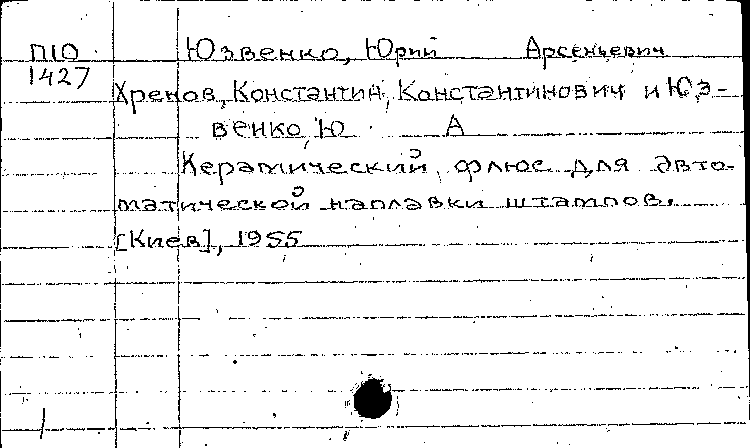 П10 Юзвенко, Юрий Арсеньевич
1427
Хренов, Константин Константинович и Юз-
венко, Ю. А
Керамический флюс для авто-
матической наплавки штампов.
[Киев], 1955